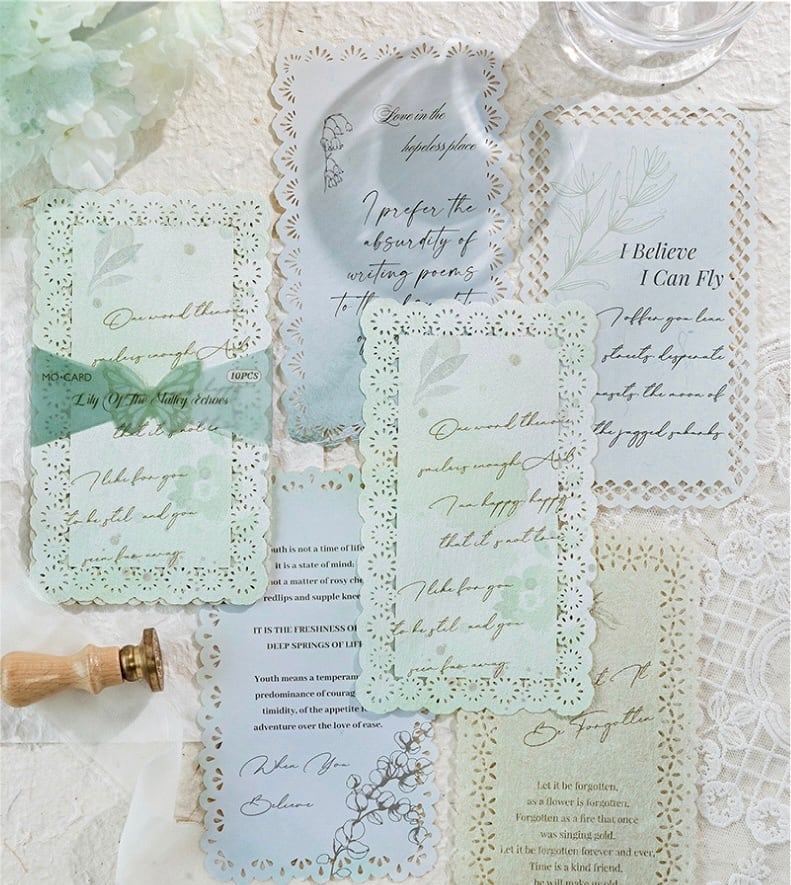 Love in the
hopeless place
I prefer the
absurdity of
writing poems
I Believe
I Can Fly
I offer you lean
streets. desperate
the moon of
the jagged suburbs
One word then
MO·CARD
10PCS
Lily Of The Valley Echoes
that it's not
I like for you
to be still and you
seem far away.
One word then
smile is enough And
I am happy; happy
that it's not
I like for you
to be still and you
seem far away.
outh is not a time of life
it is a state of mind;
not a matter of rosy che
redlips and supple knee
IT IS THE FRESHNESS OF
DEEP SPRINGS OF LIFE
Youth means a temperam
predominance of courag
timidity, of the appetite
adventure over the love of ease.
When You
Believe
t It
Be Forgotten
Let it be forgotten,
as a flower is forgotten,
Forgotten as a fire that once
was singing gold.
Let it be forgotten forever and ever,
Time is a kind friend,
he will make us old.